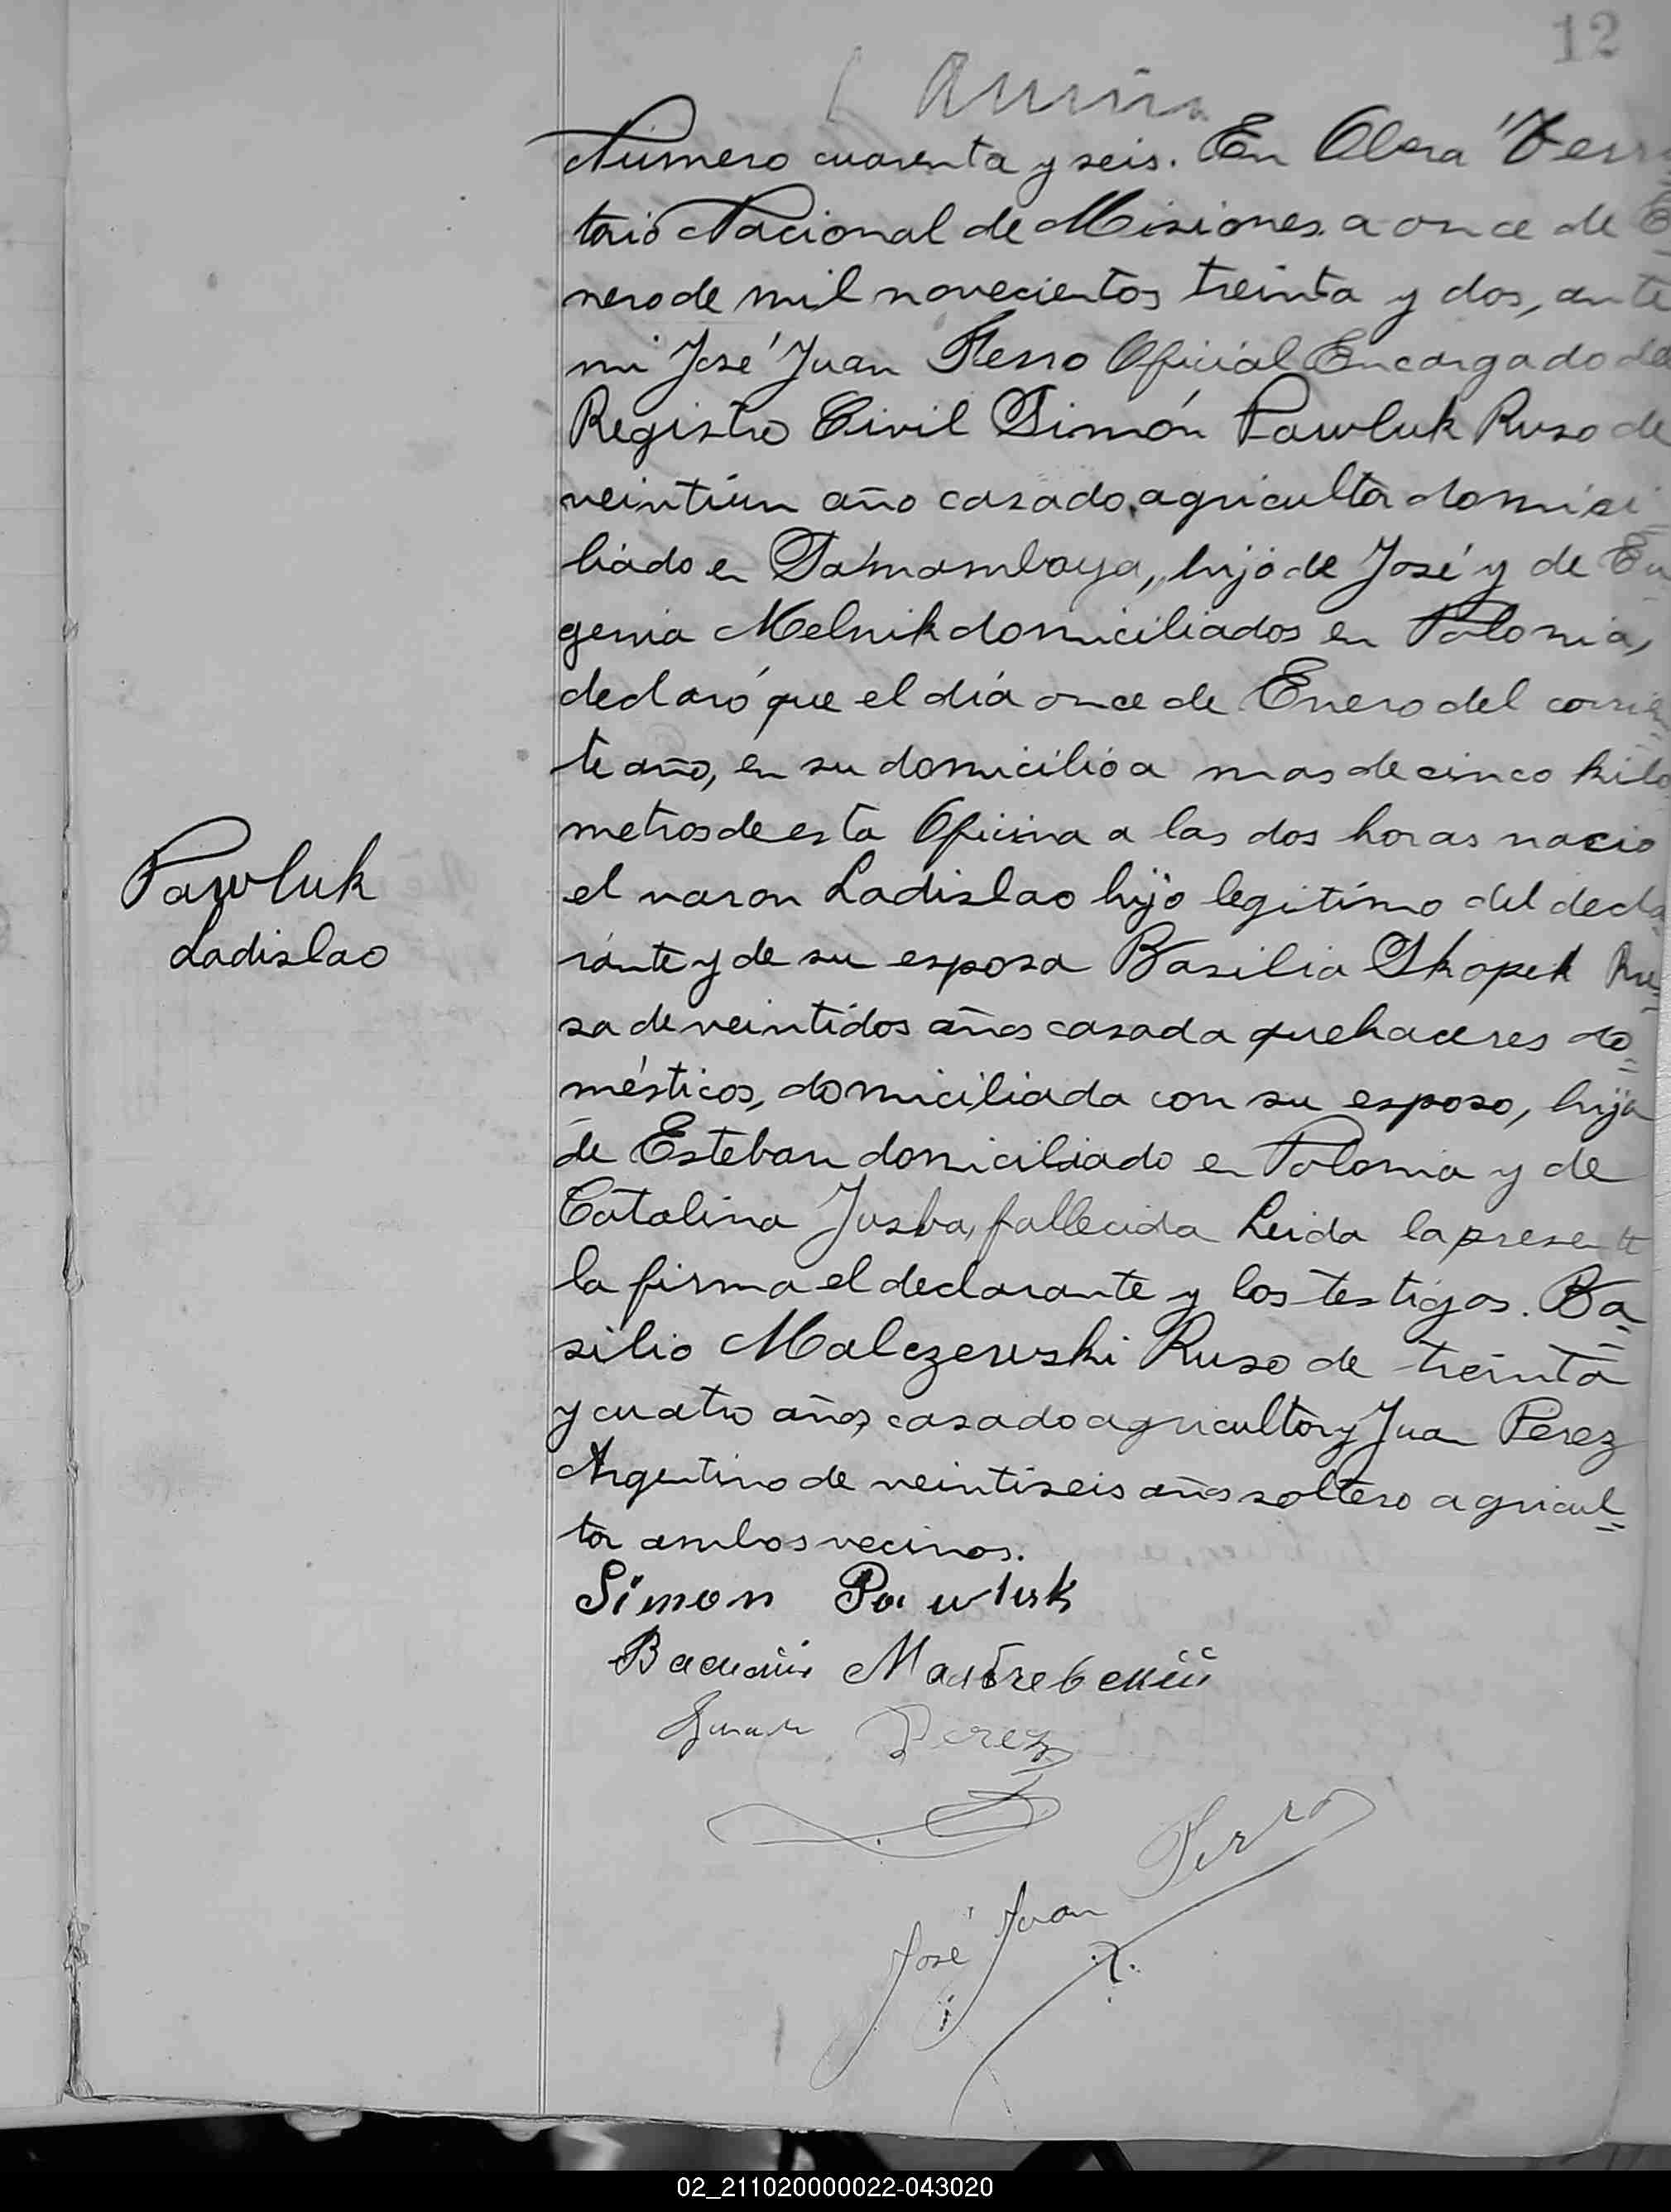 12
Número cuarenta y seis. En Obera Terr
torio Nacional de Misiones a once de E
nero de mil novecientos treinta y dos, ante
mi José Juan Ferro Oficial Encargado del
Registro Civil Simón Pawluk Ruso de
veintiun año casado, agricultor domici
liado en Samambaya, hijo de José y de Eu
genia Melnik domiciliados en Polonia,
declaró que el día once de Enero del corrien
te año, en su domicilio a mas de cinco kilo
metros de esta Oficina a las dos horas nacio
Pawluk
Ladislao
el varon Ladislao hijo legitimo del decla
rante y de su esposa Basilia Skopek Ru=
sa de veintidos años casada quehaceres do=
mésticos, domiciliada con su esposo, hija
de Esteban domiciliado en Polonia y de
Catalina Jusba, fallecida Leida la presente
la firma el declarante y los testigos. Ba=
silio Malczewski Ruso de treinta
y cuatro años, casado agricultor y Juan Perez
Argentino de veintiseis años soltero agricul=
tor ambos vecinos.
Simon Pawluk
Василий Мальчевский
Juan Perez
José Juan Ferro
02_211020000022-043020